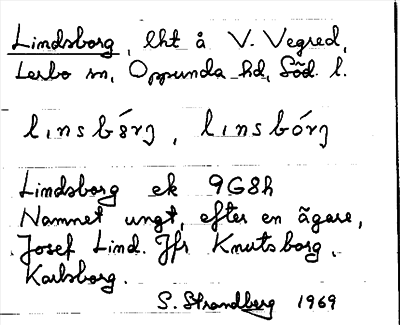 Lindsborg, lht å V. Vegred,
Lerbo sn, Oppunda hd, Söd. l.
linsbórj, linsbórj
Lindsborg ek 9G8h
Namnet ungt, efter en ägare,
Josef Lind. Jfr Knutsborg,
Karlsborg.
S. Strandberg 1969